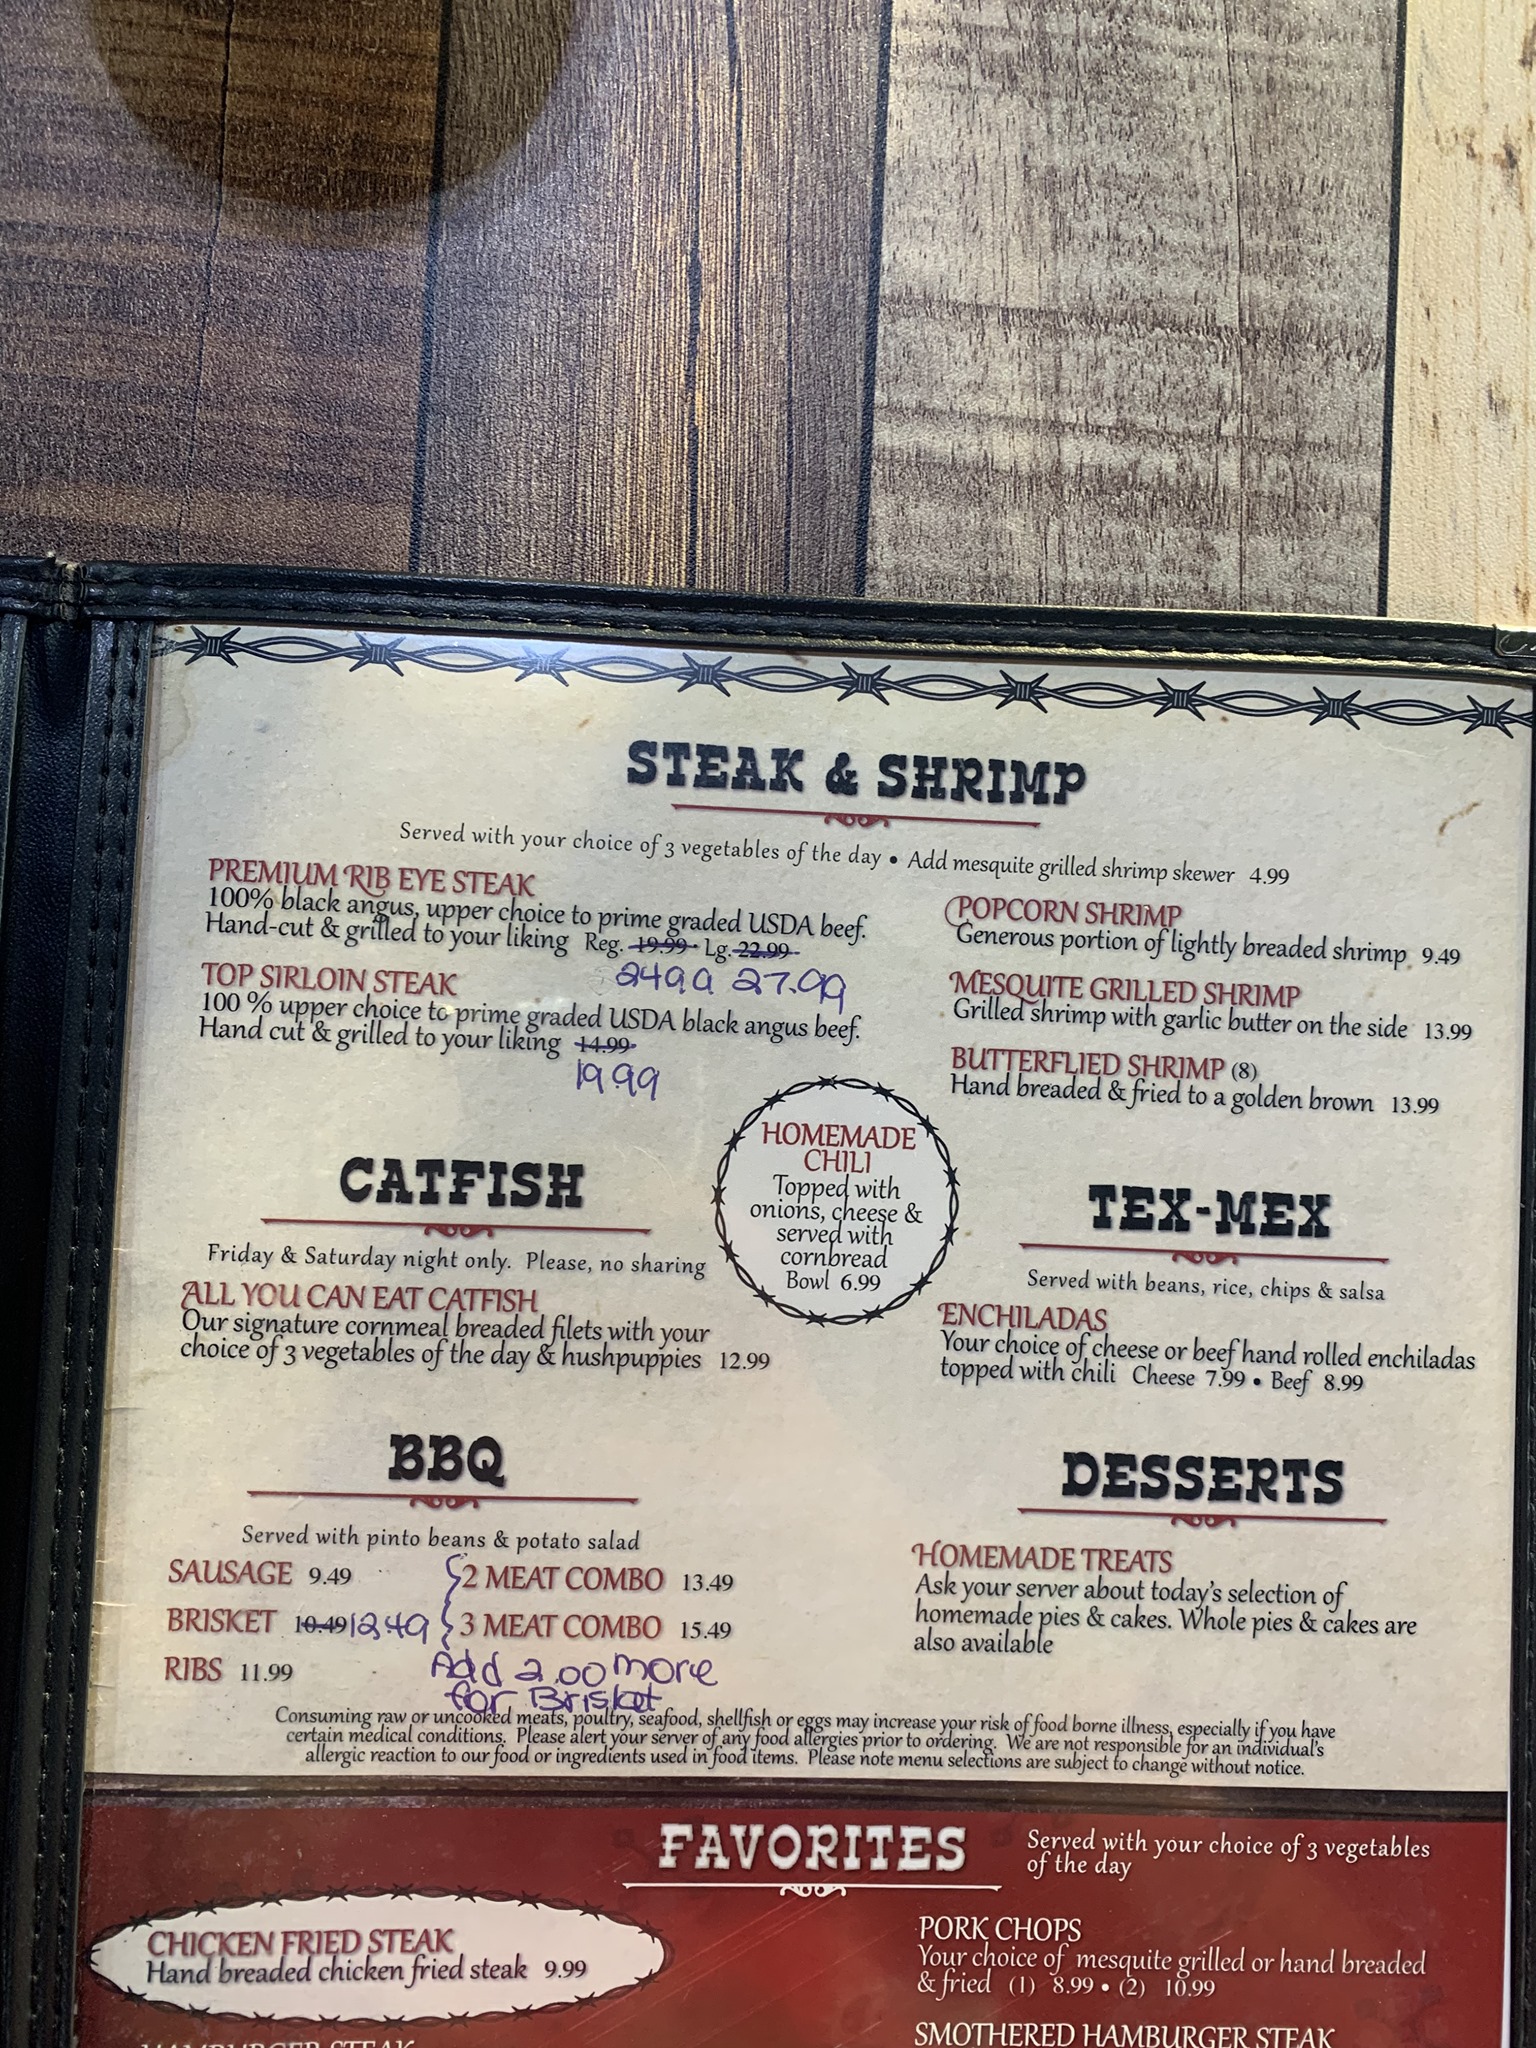 STEAK & SHRIMP
Served with your choice of 3 vegetables of the day • Add mesquite grilled shrimp skewer 4.99
PREMIUM RIB EYE STEAK
100% black angus, upper choice to prime graded USDA beef.
Hand-cut & grilled to your liking Reg. 19.99 Lg. 22.99
24.99 27.99
TOP SIRLOIN STEAK
100 % upper choice to prime graded USDA black angus beef.
Hand cut & grilled to your liking 14.99
19.99
POPCORN SHRIMP
Generous portion of lightly breaded shrimp 9.49
MESQUITE GRILLED SHRIMP
Grilled shrimp with garlic butter on the side 13.99
BUTTERFLIED SHRIMP (8)
Hand breaded & fried to a golden brown 13.99
HOMEMADE
CHILI
Topped with
onions, cheese &
served with
cornbread
Bowl 6.99
CATFISH
Friday & Saturday night only. Please, no sharing
ALL YOU CAN EAT CATFISH
Our signature cornmeal breaded filets with your
choice of 3 vegetables of the day & hushpuppies 12.99
TEX-MEX
Served with beans, rice, chips & salsa
ENCHILADAS
Your choice of cheese or beef hand rolled enchiladas
topped with chili Cheese 7.99 • Beef 8.99
BBQ
Served with pinto beans & potato salad
SAUSAGE 9.49
BRISKET 10.49 12.49
RIBS 11.99
2 MEAT COMBO 13.49
3 MEAT COMBO 15.49
Add 2.00 more
for Brisket
DESSERTS
HOMEMADE TREATS
Ask your server about today's selection of
homemade pies & cakes. Whole pies & cakes are
also available
Consuming raw or uncooked meats, poultry, seafood, shellfish or eggs may increase your risk of food borne illness, especially if you have
certain medical conditions. Please alert your server of any food allergies prior to ordering. We are not responsible for an individual's
allergic reaction to our food or ingredients used in food items. Please note menu selections are subject to change without notice.
FAVORITES
Served with your choice of 3 vegetables
of the day
CHICKEN FRIED STEAK
Hand breaded chicken fried steak 9.99
PORK CHOPS
Your choice of mesquite grilled or hand breaded
& fried (1) 8.99 • (2) 10.99
HAMBURGER STEAK
SMOTHERED HAMBURGER STEAK